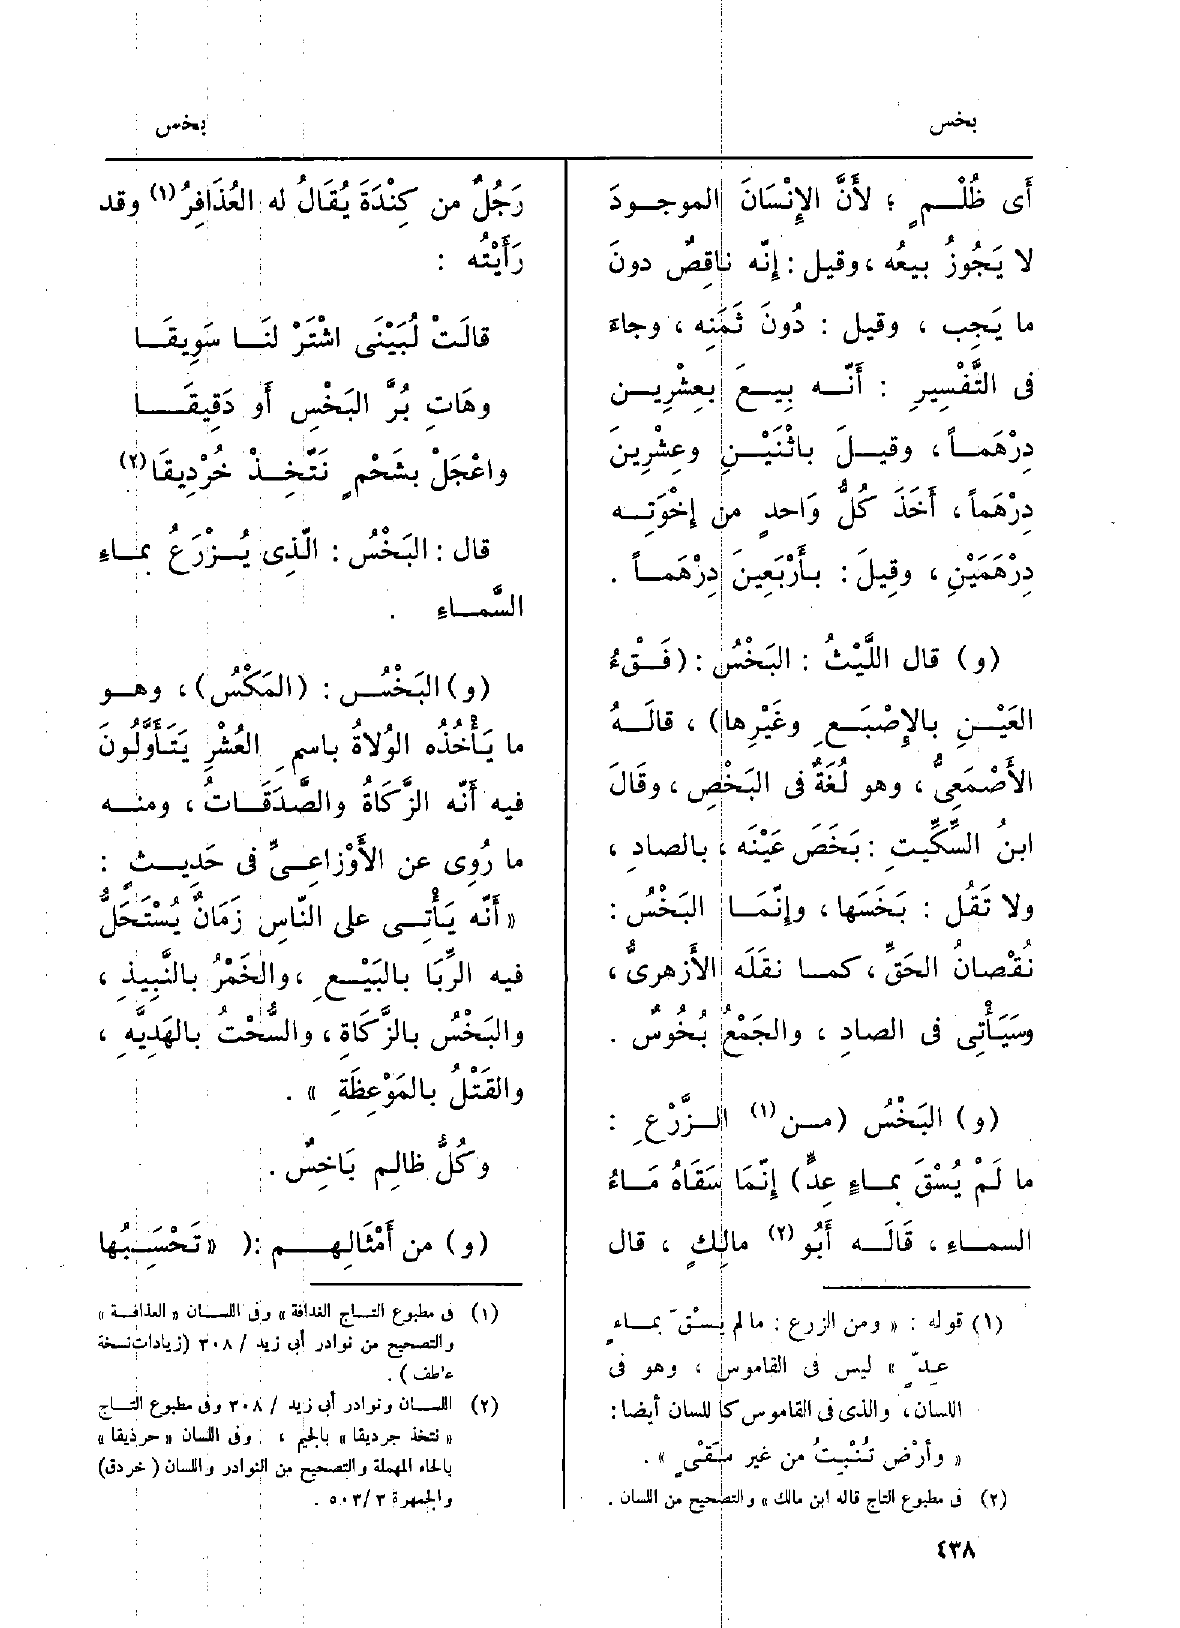 بخس
بخس
أَى ظُلْــمٍ ؛ لأَنَّ الإِنْسَانَ الموجــودَ
لا يَجُوزُ بيعُه ، وقيل : إِنّه ناقِصٌ دونَ
ما يَجِب ، وقيل : دُونَ ثَمَنِه ، وجاءَ
فى التَّفْسِيرِ : أَنّــه بِيــعَ بعِشْرِيــن
دِرْهَمــاً ، وقيــلَ باثْنَيْــنِ وعِشْرِينَ
دِرْهَماً ، أَخَذَ كُلُّ وَاحدٍ من إِخْوَتِــه
دِرْهَمَيْنِ ، وقيلَ : بأَرْبَعِينَ دِرْهَمــاً .
(و) قال اللَّيْثُ : البَخْسُ : (فَــقْءُ
العَيْــنِ بالإِصْبَــعِ وغَيْرِها) ، قالَــهُ
الأَصْمَعِىُّ ، وهو لُغَةٌ فى البَخْصِ ، وقَالَ
ابنُ السِّكِّيت : بَخَصَ عَيْنَه ، بالصادِ ،
ولا تَقُل : بَخَسَها ، وإِنَّمَــا البَخْسُ :
نُقْصانُ الحَقِّ ، كمــا نقَلَه الأَزهرىُّ ،
وسَيَأْتِى فى الصادِ ، والجَمْعُ بُخُوسٌ .
(و) البَخْسُ (مــن (١) الــزَّرْعِ :
ما لَمْ يُسْقَ بمــاءٍ عِدٍّ) إِنَّمَا سَقَاهُ مَــاءُ
السمــاءِ ، قَالَــه أَبُو (٢) مالِكٍ ، قال
(١) قوله : « ومن الزرع : ما لم يسْقَ بمــاءٍ
عــدٍّ » ليس فى القاموس ، وهو فى
اللسان، والذى فى القاموس كاللسان أيضا :
« وأرْض تُنْبِتُ من غير سَقْىٍ » .
(٢) فى مطبوع التاج قاله ابن مالك » والتصحيح من اللسان .
٤٣٨
رَجُلٌ من كِنْدَةَ يُقَالُ له العُذَافِرُ (١) وقد
رَأَيْتُه :
قالَتْ لُبَيْنَى اشْتَرْ لنَــا سَوِيقَــا
وهَاتِ بُرَّ البَخْسِ أَو دَقِيقَــــا
واعْجَلْ بشَحْمٍ نَتَّخِــذْ خُرْدِيقَا (٢)
قال : البَخْسُ : الَّذِى يُــزْرَعُ بمــاءِ
السَّمــاءِ .
(و) البَخْــس : (المَكْسُ) ، وهــو
ما يَأْخُذُه الوُلاةُ باسمِ العُشْرِ يَتَأَوَّلُونَ
فيه أَنّه الزَّكَاةُ والصَّدَقَــاتُ ، ومنــه
ما رُوِى عن الأَوْزاعِــىِّ فى حَدِيــث :
« أَنّه يَأْتِــى على النّاسِ زَمَانٌ يُسْتَحَلُّ
فيه الرِّبَا بالبَيْــعِ ، والخَمْرُ بالنَّبِيذِ ،
والبَخْسُ بالزَّكَاةِ ، والسُّحْتُ بالهَدِيَّهِ ،
والقَتْلُ بالمَوْعِظَةِ » .
وكُلُّ ظالِم بَاخِسٌ .
(و) من أَمْثَالِهــم :( « تَحْسَــبُها
(١) فى مطبوع التــاج الغدافة » وفى اللســان « العذافــة »
والتصحيح من نوادر أبى زيد / ٣٠٨ (زيادات نسخة
عاطف ) .
(٢) اللســان ونوادر أبى زيد / ٣٠٨ وفى مطبوع التــاج
« نتخذ جرديقا » بالجيم ، وفى اللسان « حرذيقا »
بالحاء المهملة والتصحيح من النوادر واللسان ( خردق)
والجمهرة ٣/٥٠٣ .